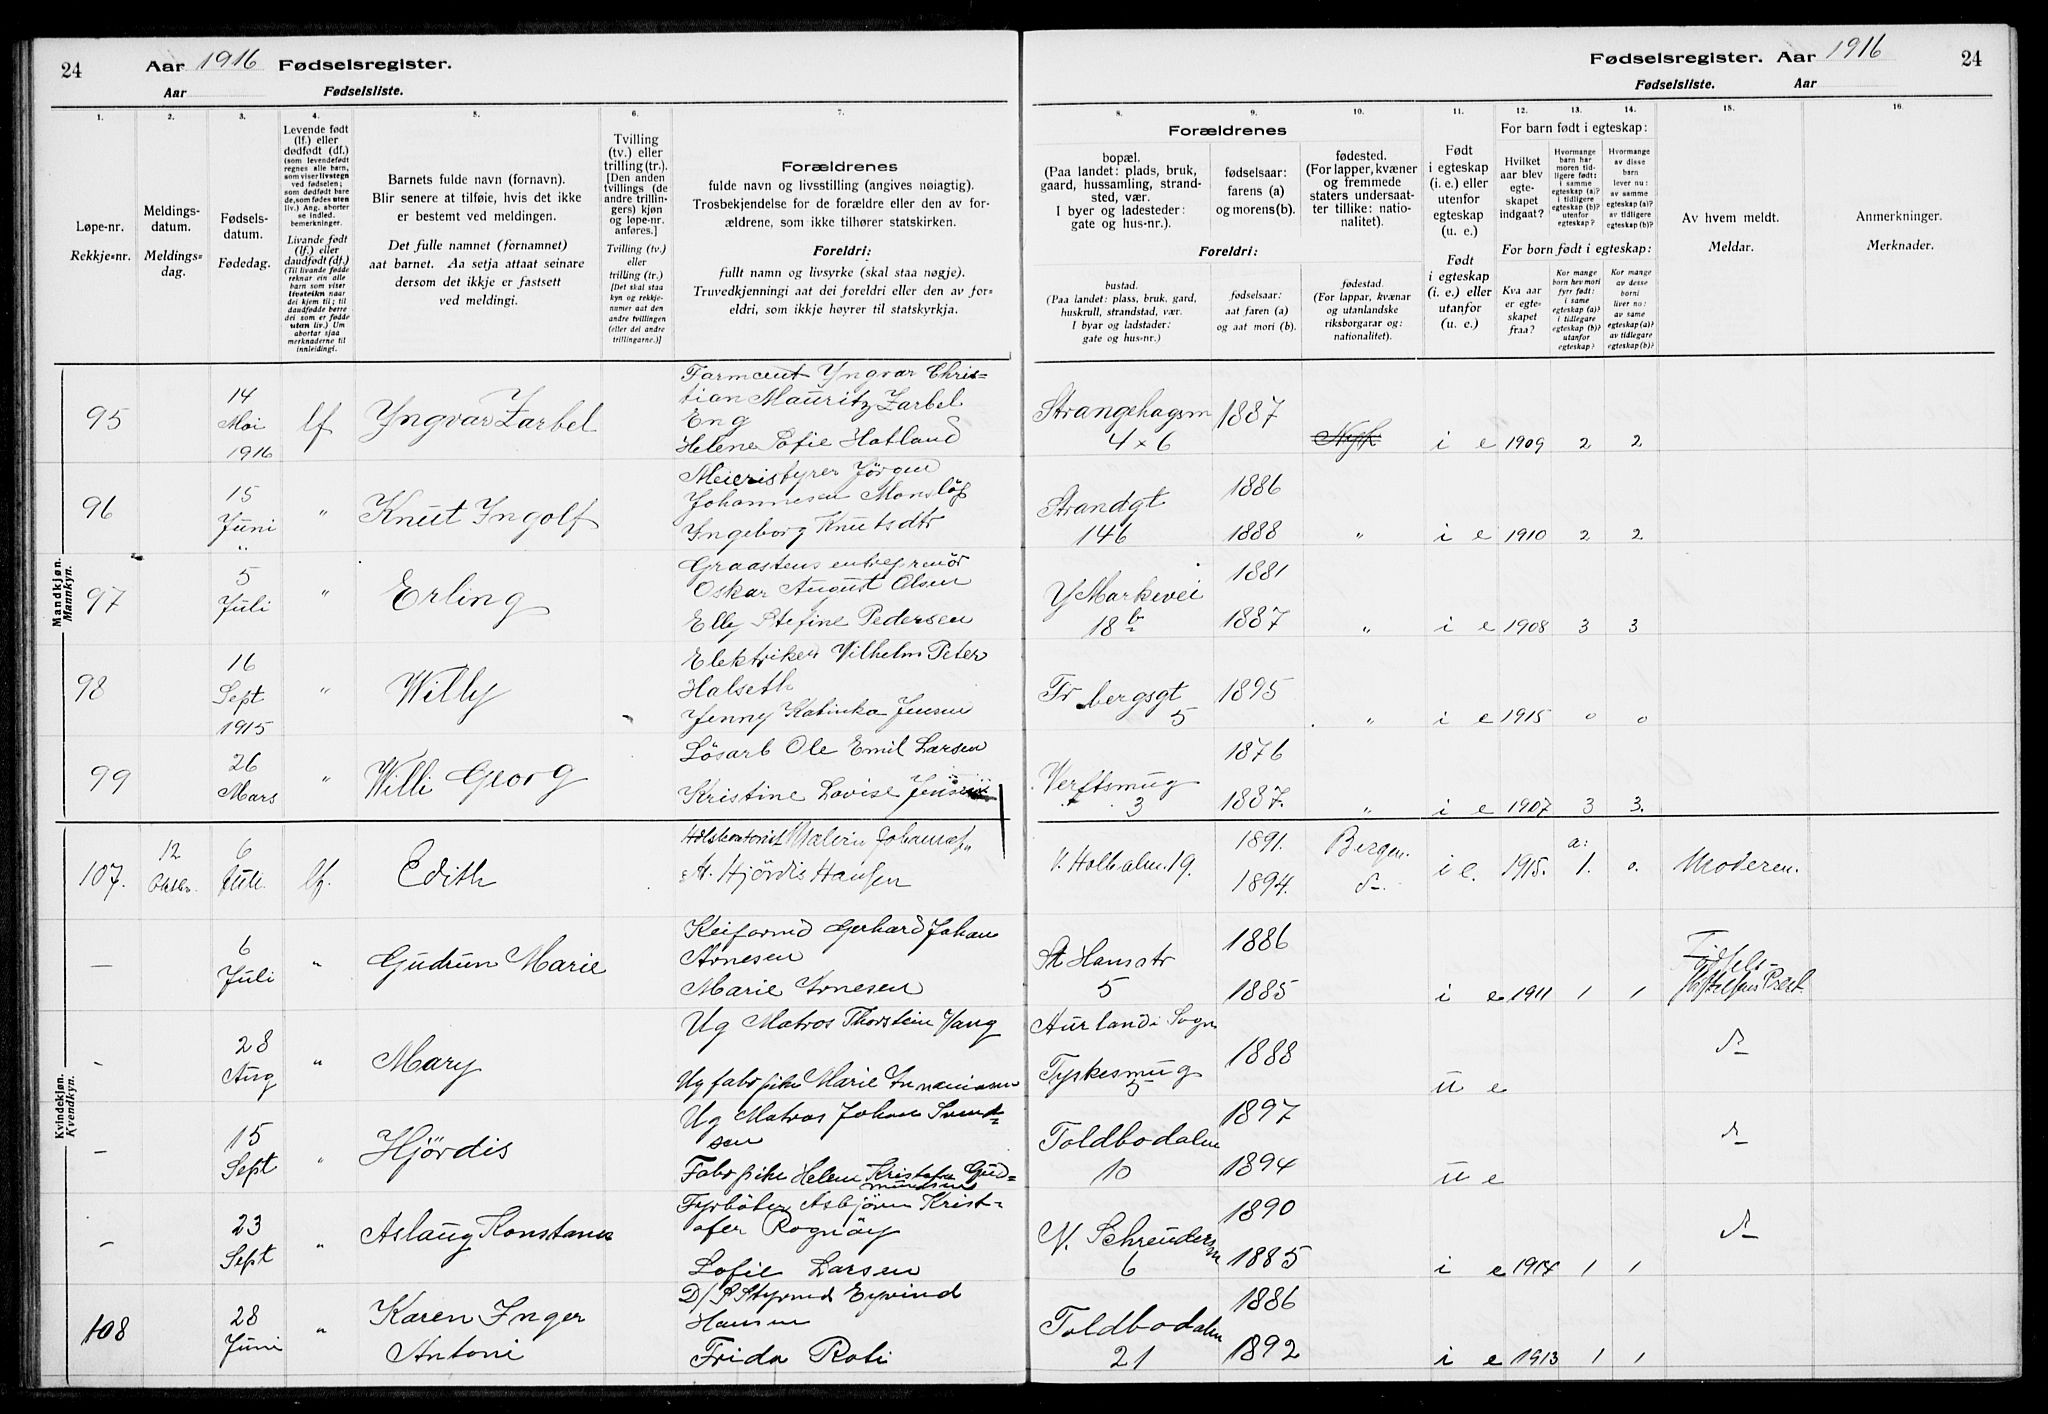 24
Aar 1916 Fødselsregister.
Aar Fødselsliste.
Fødselsregister. Aar 1916
24
Fødselsliste. Aar
1.
2.
3.
4.
5.
6.
7.
8.
9.
10.
11.
12.
13.
14.
15.
16.
Løpe-nr.
Rekkje-nr.
Meldings-
datum.
Meldings-
dag.
Fødsels-
datum.
Fødedag.
Levende født
(lf.) eller
dødfødt (df.)
(som levendefødt
regnes alle barn,
som viser livstegn
ved fødselen;
som dødfødt bare
de, som fødes uten
liv.) Ang. aborter
se indled.
bemerkninger.
Livande født
(lf.) eller
daudfødt (df.)
(Til livande fødde
reknar ein alle
barn som viser
livsteikn naar
dei kjem til; til
daudfødde berre
dei som er fødde
uten liv.) Um
abortar sjaa
merknaderne til
innleidingi.
Barnets fulde navn (fornavn).
Blir senere at tilføie, hvis det ikke
er bestemt ved meldingen.
Det fulle namnet (fornamnet)
aat barnet. Aa setja attaat seinare
dersom det ikkje er fastsett
ved meldingi.
Tvilling
(tv.) eller
trilling (tr.).
[Den anden
tvillings (de
andre trillin-
gers) kjøn
og løpe-nr.
anføres.]
Tvilling (tv.)
eller
trilling (tr.)
[Det skal staa
kyn og rekkje-
numer aat den
andre tvillingen
(eller dei andre
trillingarne.)]
Forældrenes
fulde navn og livsstilling (angives nøiagtig).
Trosbekjendelse for de forældre eller den av for-
ældrene, som ikke tilhører statskirken.
Foreldri:
fullt namn og livsyrke (skal staa nøgje).
Truvedkjenningi aat dei foreldri eller den av for-
eldri, som ikkje høyrer til statskyrkja.
Forældrenes
bopæl.
(Paa landet: plads, bruk,
gaard, hussamling, strand-
sted, vær.
I byer og ladesteder:
gate og hus-nr.).
fødselsaar:
farens (a)
og morens (b).
fødested.
(For lapper, kvæner
og fremmede
staters undersaat-
ter tillike: natio-
nalitet).
Foreldri:
bustad.
(Paa landet: plass, bruk, gard,
huskrull, strandstad, vær.
I byar og ladstader:
gate og hus-nr.)
fødselsaar:
aat faren (a)
og aat mori (b).
fødestad.
(For lappar, kvænar
og utanlandske
riksborgarar og:
nationalitet).
Født
i egteskap
(i. e.) eller
utenfor
egteskap
(u. e.)
Født
i egteskap
(i. e.) eller
utanfor
(u. e.)
For barn født i egteskap:
Hvilket
aar blev
egte-
skapet
indgaat?
Hvormange
barn har
moren tid-
ligere født:
i samme
egteskap (a)?
i tidligere
egteskap (b)?
utenfor
egteskap?
Hvormange
av disse
barn
lever nu:
av samme
egteskap (a)?
av tidligere
egteskap (b)?
For born født i egteskap:
Kva aar
er egte-
skapet
fraa?
Kor mange
born hev mori
fyrr født:
i same
egteskap (a)?
i tidlegare
egteskap (b)?
utanfor
egteskap?
Kor mange
av desse
borni
liver no:
av same
egteskap (a)?
av tidlegare
egteskap (b)?
Av hvem meldt.
Meldar.
Anmerkninger.
Merknader.
Mandkjøn.
Mannkyn.
95 14 Mai 1916 lf Yngvar Zarbel
Farmcent Yngvar Chris=
tian Mauritz Zarbel
Eng
Helene Sofie Hatland
Strangehagsm 4 × 6 1887 i e 1909 2 2
96 15 Juni " " Knut Ingolf
Meieristyrer Jörgen
Johannesen Monsløp
Ingeborg Knutsdtr
Strandgt 146 1886 1888 " i e 1910 2 2
97 5 Juli " Erling
Graastens entreprenör
Oskar August Olsen
Elly Stefine Pedersen
Y Markevei 18 b 1881 1887 " i e 1908 3 3
98 16 Sept 1915 " Willy
Elektriker Vilhelm Peter
Halseth
Jenny Katinka Jensen
Fr bergsgt 5 1895 " i e 1915 0 0
99 26 Mars " Willi Georg
Løsarb Ole Emil Larsen
Kristine Lovise Jensen
Verftsmug 3 1876 1887. " i e 1907 3 3.
Kvindekjøn.
Kvendkyn.
107. 12 Oktbr. 6 Juli. lf. Edith
Johansen
Hjördis Hansen
V. Holbalm. 19. 1891. 1894. Bergen. d–. i e. 1915. a: 1. 0. Moderen.
– 6 Juli " Gudrun Marie
Gerhard Johan
Arnesen
Marie Arnesen
St Hansstr 5 1886 1885 i e 1911 1 1
– 28 Aug " Mary
Ug Matros Thorstein Vang
Ug fabrpike Marie
Aurland i Sogn
Tyskesmug 5 1888 u e d–
– 15 Sept " Hjördis
Ug Matros Johan Svend-
sen
Fabrpike Helene Kristofa Gud-
mundsen
Toldbodalm 10 1897 1894 u e d–
– 23 Sept " Aslaug Konstanse
Fyrböter Asbjörn Krist-
ofer Rognöy
Sofie Larsen
N. Schreudersm 6 1890 1885 i e 1914 1 1 d–
108 28 Juni " Karen Inger
Antoni
D/S Styrmd Eyvind
Hansen
Frida Roti
Toldbodalm 21 1886 1892 i e 1913 1 1